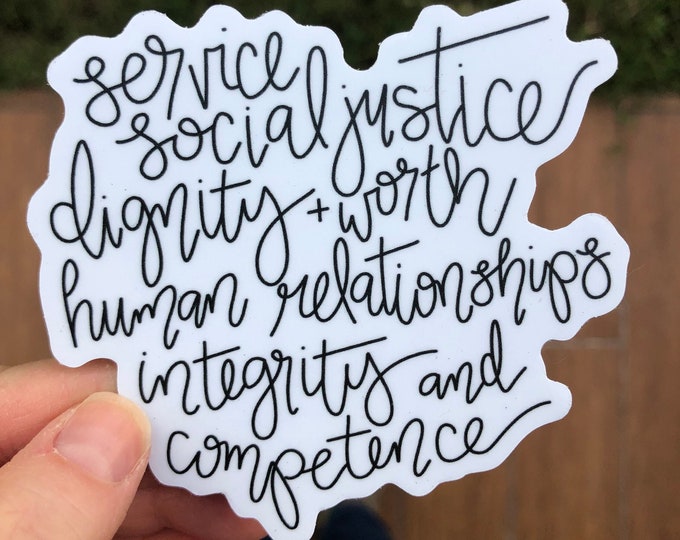 service
social justice
dignity + worth
human relationships
integrity and
competence